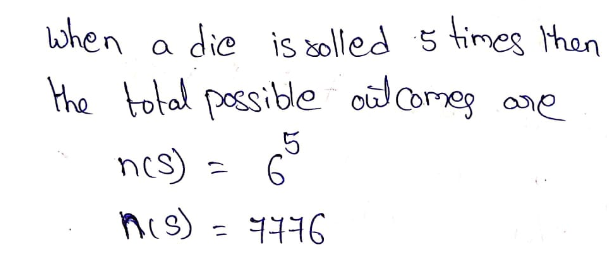 When a die is rolled 5 times then
the total possible outcomes are
n(S) = 6⁵
n(S) = 7776